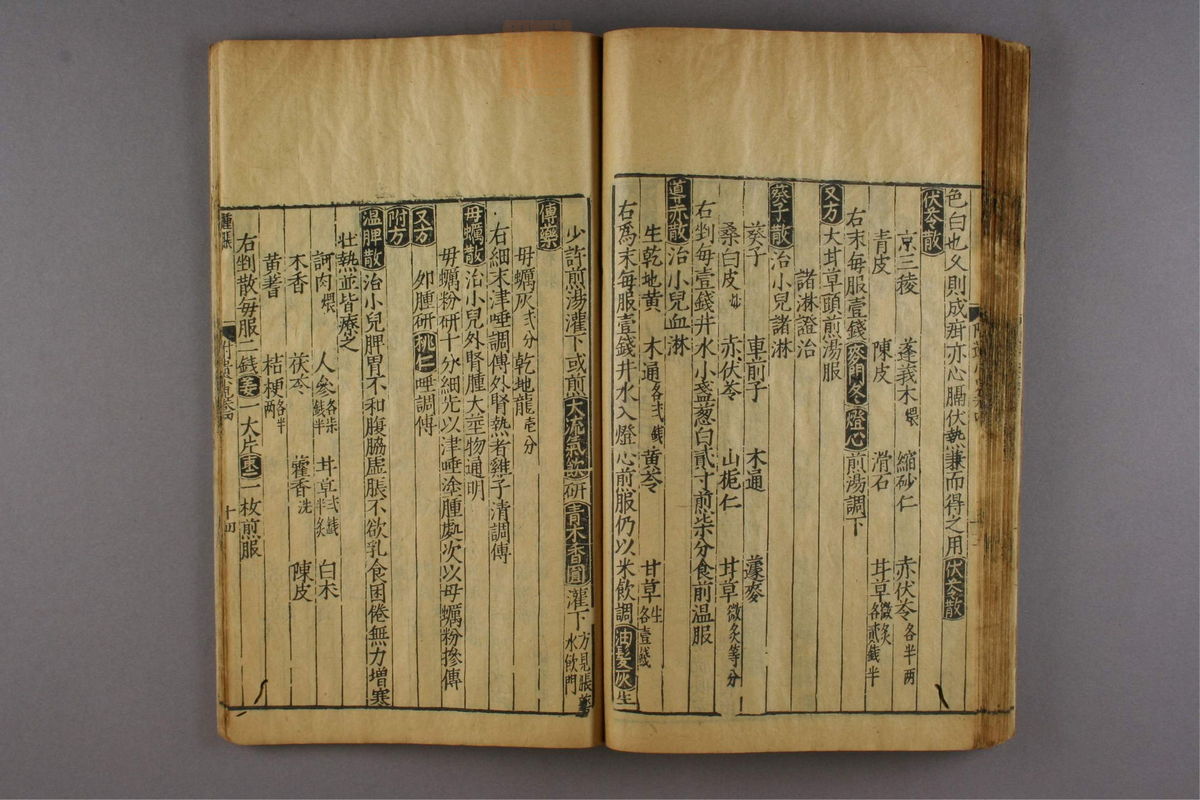 色白也久則成疳亦心膈伏熱兼而得之用伏苓散
伏苓散
京三稜 蓬莪木煨 縮砂仁 赤伏苓各半两
青皮 陳皮 滑石 甘草微炙各貳錢半
右末每服壹錢麥門冬燈心煎湯調下
又方大甘草頭煎湯服
諸淋證治
葵子散治小兒諸淋
葵子 車前子 木通 蘧麥
桑白皮炒 赤伏苓 山梔仁 甘草微炙等分
右剉每壹錢井水小盞葱白貳寸煎柒分食前温服
導赤散治小兒血淋
生乾地黄 木通各弍錢 黄芩 甘草生各壹錢
右爲末每服壹錢井水入燈心煎服仍以米飲調油髮灰生
少許煎湯灌下或煎大流氣飲研青木香圓灌下方見脹
水飲門
傳藥
母蠣灰弍分乾地龍壱分
右細末津唾調傳外腎熱者雞子清調傳
母蠣散治小兒外腎腫大莖物通明
母蠣粉研十分細先以津唾塗腫處次以母蠣粉摻傳
又方
夘腫研桃仁唾調傳
附方
温脾散治小兒脾胃不和腹脇虚脹不欲乳食困倦無力增寒
壮熱並皆療之
訶肉煨 人參各柒錢半 甘草弍錢半炙 白木
木香 茯苓 藿香洗 陳皮
黄蓍 桔梗各半两
右剉散每服二錢姜一大片棗一枚煎服
腫脹
十四